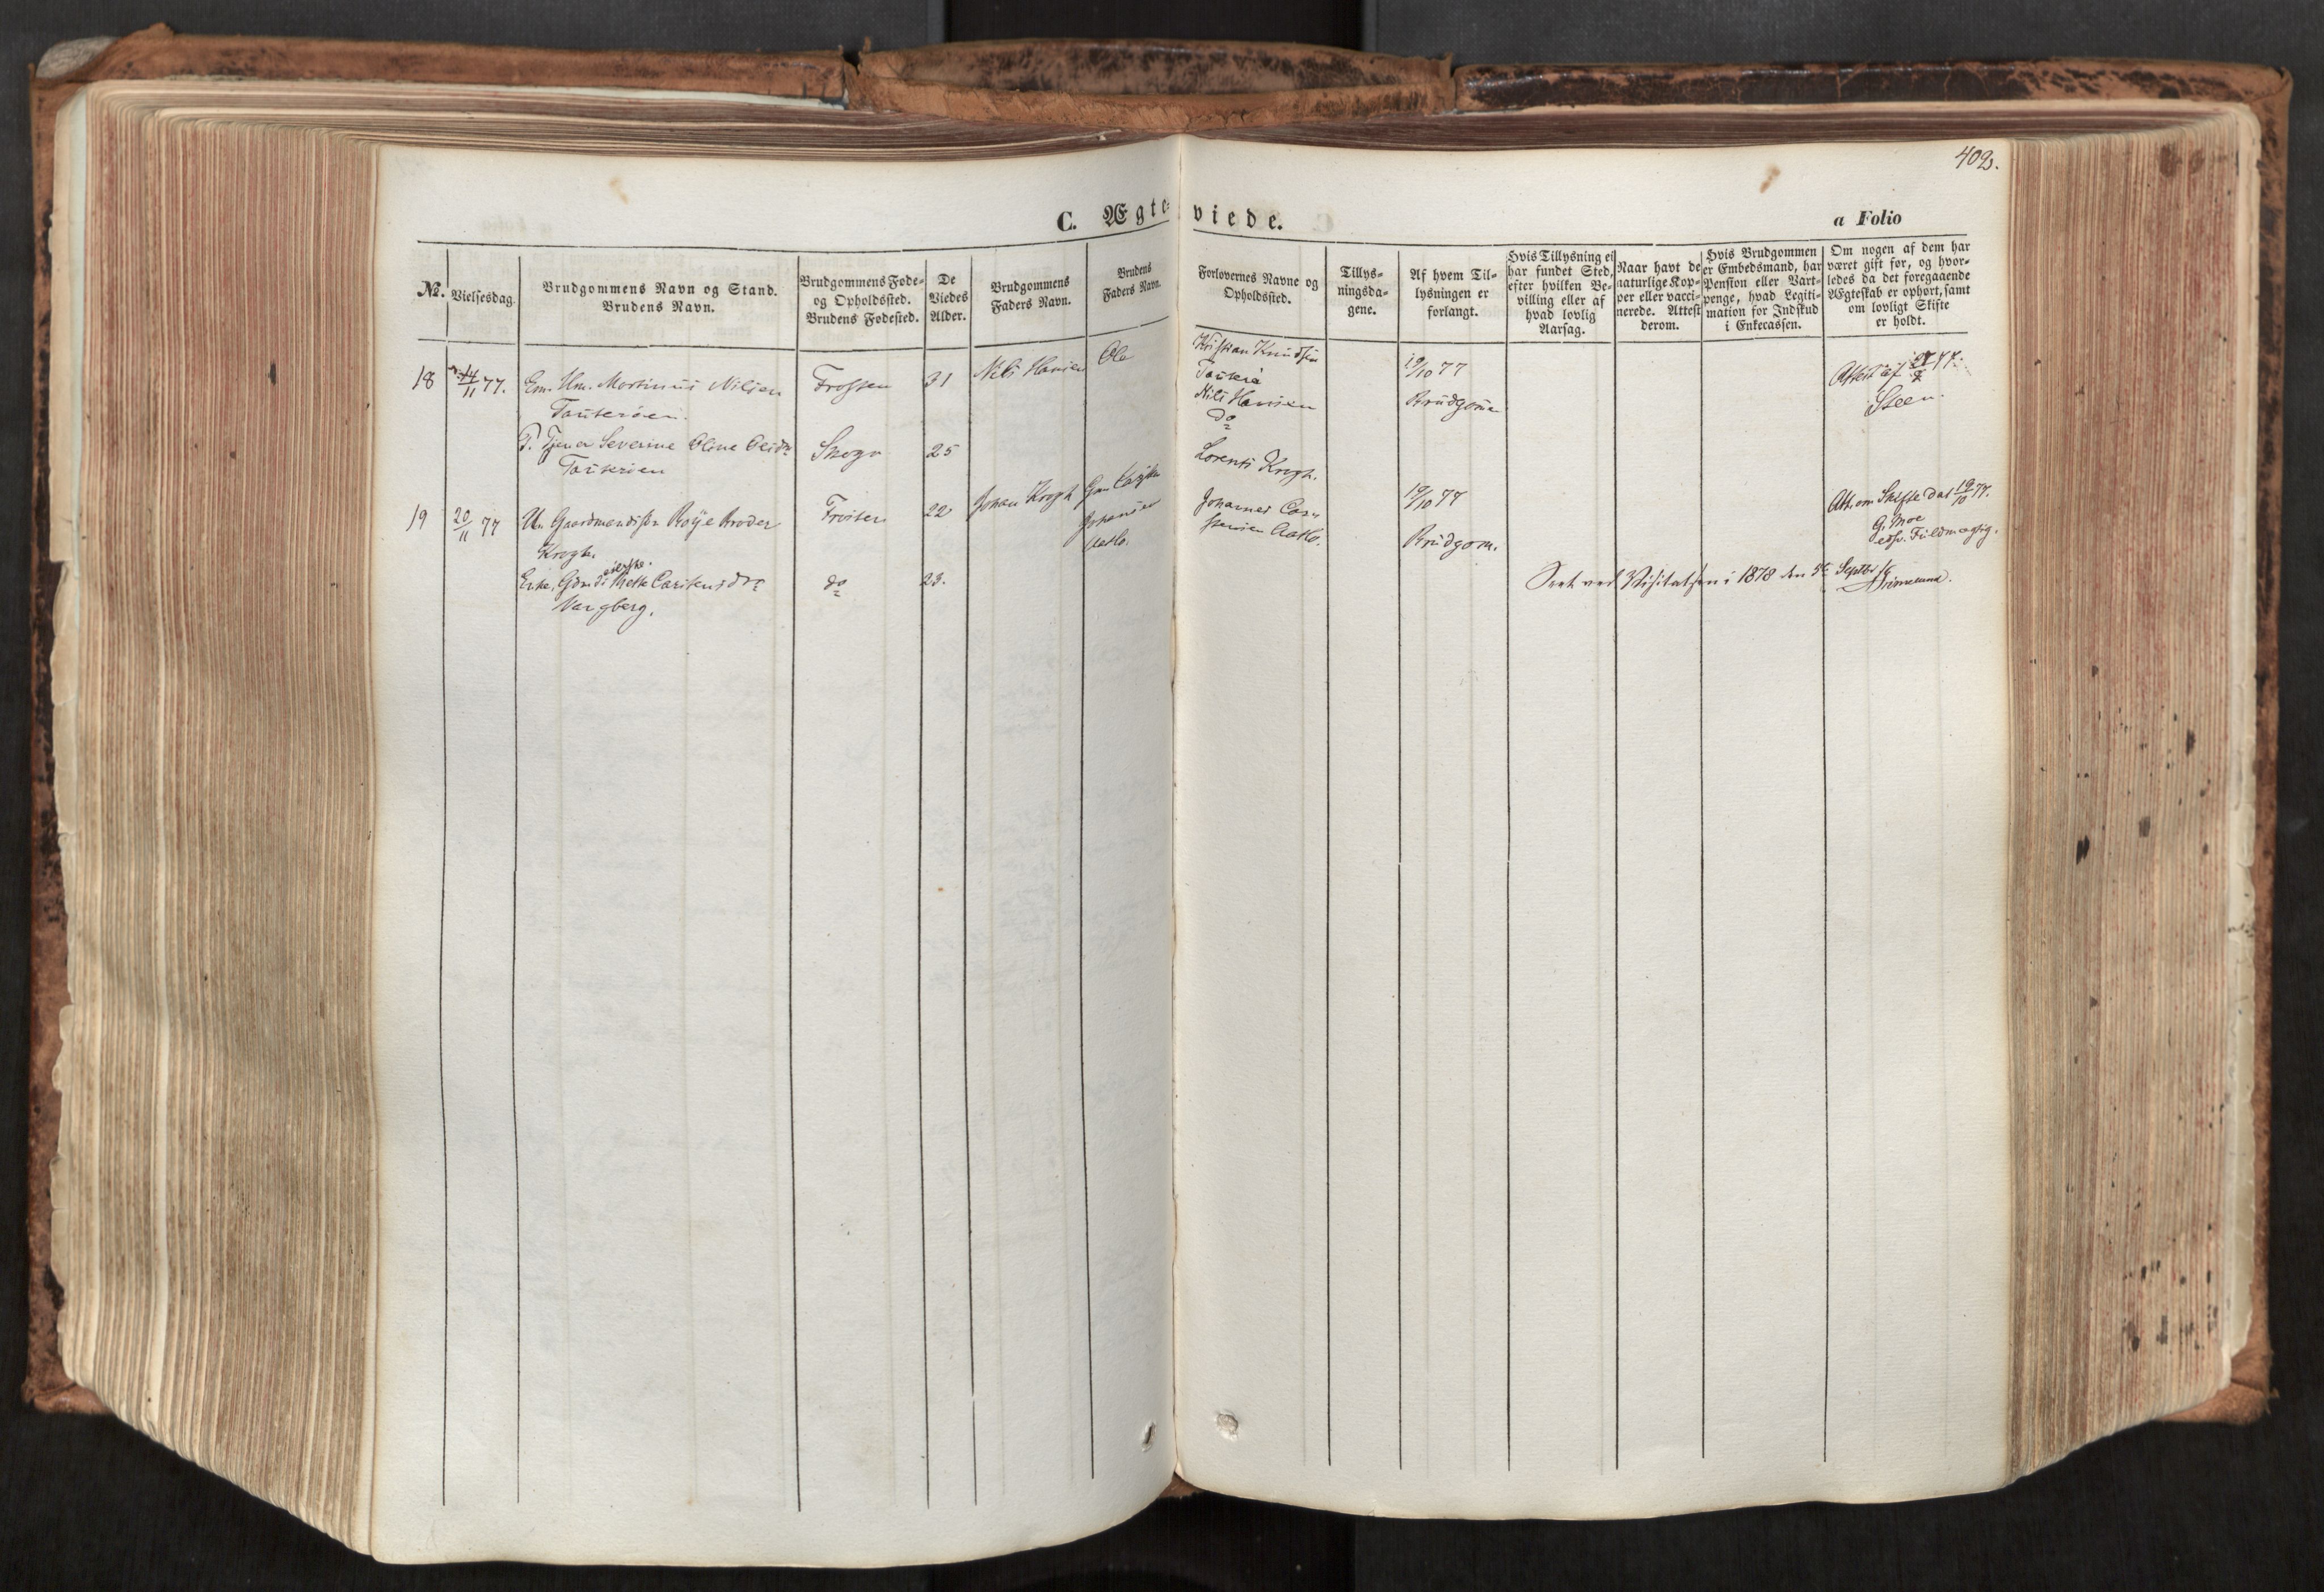 409.
C. Ægteviede.
a Folio
No.
Vielsesdag.
Brudgommens Navn og Stand.
Brudens Navn.
Brudgommens Føde-
og Opholdssted.
Brudens Fødested.
De
Viedes
Alder.
Brudgommens
Faders Navn.
Brudens
Faders Navn.
Forlovernes Navne og
Opholdssted.
Tillys-
ningsda-
gene.
Af hvem Til-
lysningen er
forlangt.
Hvis Tillysning ei
har fundet Sted,
efter hvilken Be-
villing eller af
hvad lovlig
Aarsag.
Naar havt de
naturlige Kop-
per eller vacci-
nerede. Attest
derom.
Hvis Brudgommen
er Embedsmand, har
Pension eller Vart-
penge, hvad Legiti-
mation for Indskud
i Enkecassen.
Om nogen af dem har
været gift før, og hvor-
ledes da det foregaaende
Ægteskab er ophørt, samt
om lovligt Skifte
er holdt.
18
14/11 77.
Em. Um. Martinus Nilsen
Tauterøen.
P. Tjener Severine Oline Olsdr
Tauterøen
Frossen
Skogn
31
25
Nils Hansen
Ole
Kristian Knudsen
Tauterø
Nils Hansen
do
19/10 77
Brudgom
Attest af 77.
Steen.
19
20/11 77
U. Gaardmandssøn Roye Broder
Krogh.
Enke, Gdmds Mette Carstensdr
Vangberg.
Frosten
do
22
23.
Johan Krogh
Gm Carsten
Johansen
Aatlo.
Lorents Krogh.
Johannes Car-
stensen Aatlo.
19/10 77
Brudgom.
Att. om Skifte dat 19/10 77.
G. Moe
edsv. Fuldmægtig.
Seet ved Visitatsen i 1878 den 5te Septbr